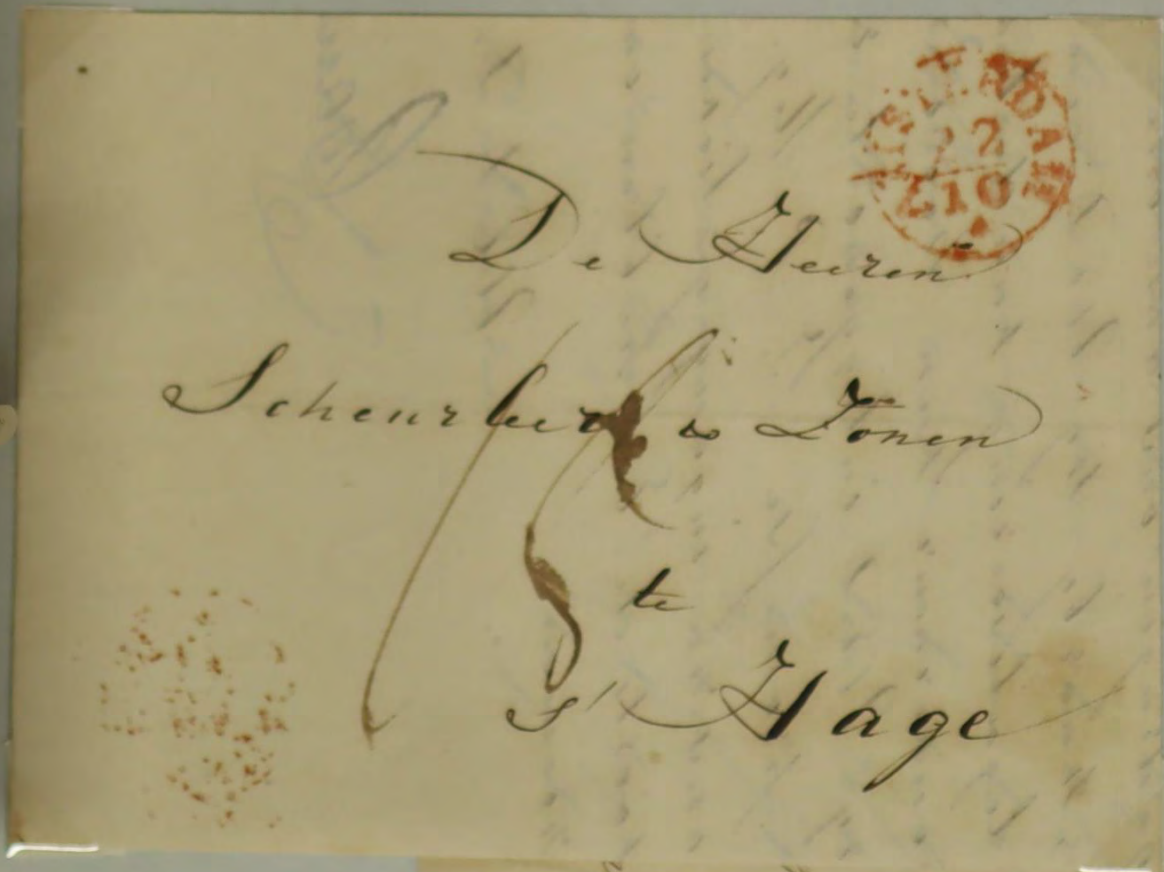 AMSTERDAM
22
10
De Heeren
Scheurleer & Zonen
te
s' Hage